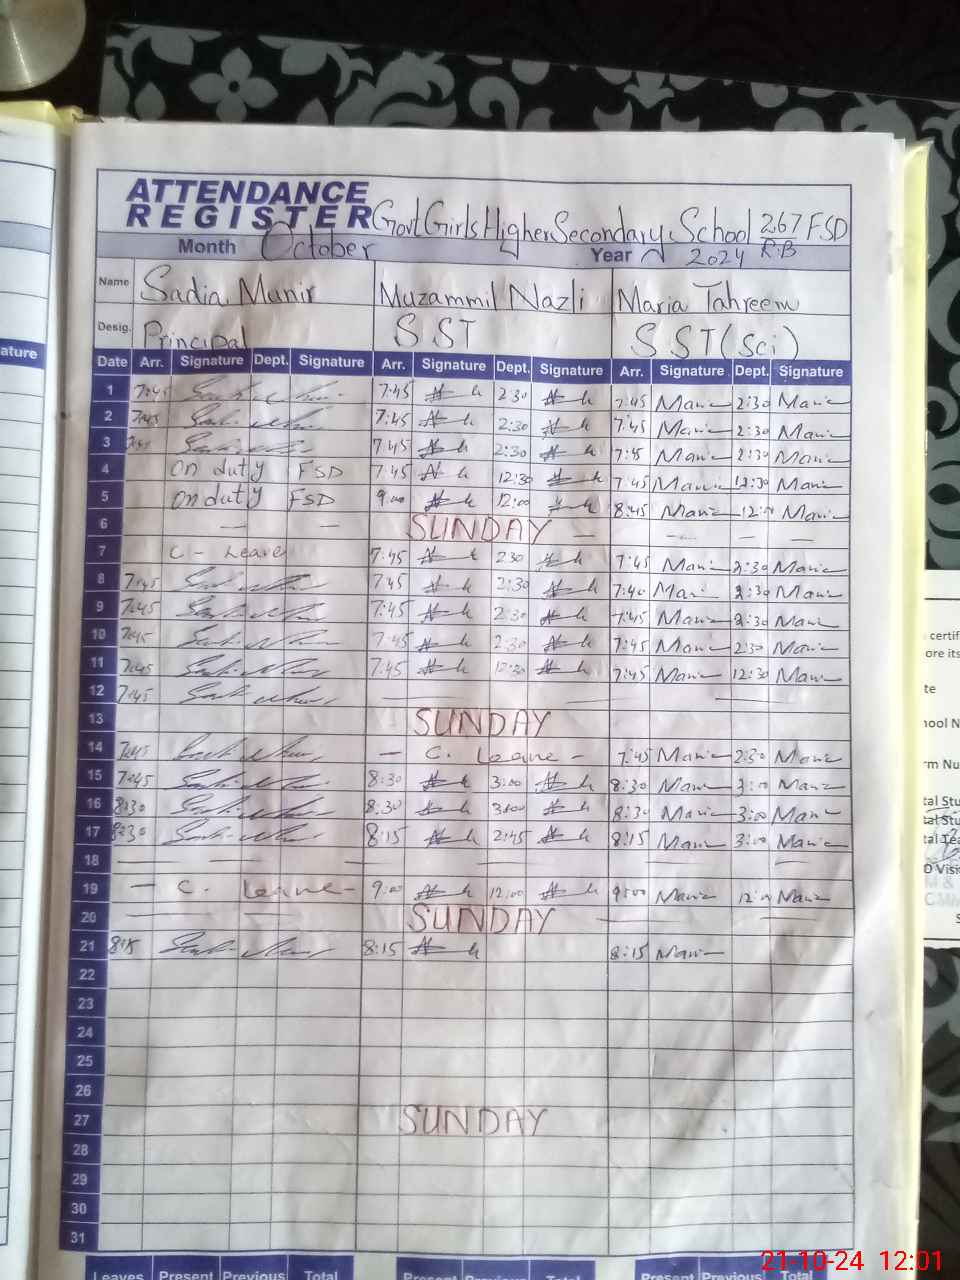 ATTENDANCE
REGISTER Govt Girls Higher Secondary School 267 FSD
Month October Year 2024 R.B
Name Sadia Munir Muzammil Nazli Maria Tahreem
Desig. Principal SST SST (Sci)
ature
Date Arr. Signature Dept. Signature Arr. Signature Dept. Signature Arr. Signature Dept. Signature
1 7:45 7:45 2:30 7:45 Maria 2:30 Maria
2 7:45 7:45 2:30 7:45 Maria 2:30 Maria
3 7:45 7:45 2:30 7:45 Maria 2:30 Maria
4 On duty FSD 7:45 12:30 7:45 Maria 12:30 Maria
5 On duty FSD 9:00 12:00 8:45 Maria 12:00 Maria
6 — — SUNDAY — — — —
7 C - Leave 7:45 2:30 7:45 Maria 2:30 Maria
8 7:45 7:45 2:30 7:40 Maria 2:30 Maria
9 7:45 7:45 2:30 7:45 Maria 2:30 Maria
10 7:45 7:45 2:30 7:45 Maria 2:30 Maria
11 7:45 7:45 12:30 7:45 Maria 12:30 Maria
12 7:45 — — — —
13 SUNDAY
14 7:45 — C. Leave - 7:45 Maria 2:30 Maria
15 7:45 8:30 3:00 8:30 Maria 3:00 Maria
16 8:30 8:30 3:00 8:30 Maria 3:00 Maria
17 8:30 8:15 2:45 8:15 Maria 3:00 Maria
18 — — — — — — —
19 — C. Leave - 9:00 12:00 9:00 Maria 12:00 Maria
20 — — SUNDAY — — —
21 8:15 8:15 8:15 Maria
22
23
24
25
26
27 SUNDAY
28
29
30
31
Leaves Present Previous Total Present Previous Total Present Previous Total
certif
ore its
te
hool N
rm Nu
tal Stu
tal Stu
tal Tea
D Visi
M &
CMM
21-10-24 12:01